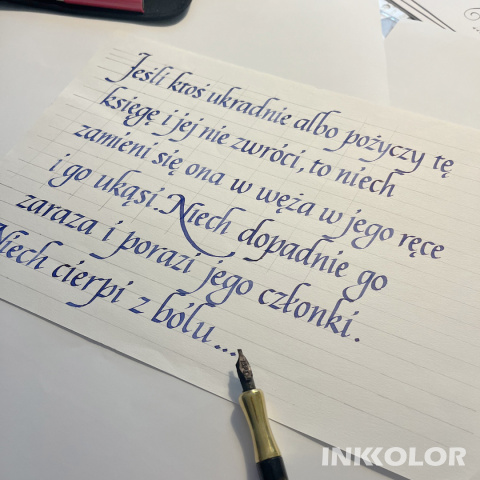 Jeśli ktoś ukradnie albo pożyczy tę
księgę i jej nie zwróci, to niech
zamieni się ona w węża w jego ręce
i go ukąsi. Niech dopadnie go
zaraza i porazi jego członki.
Niech cierpi z bólu...
INKKOLOR